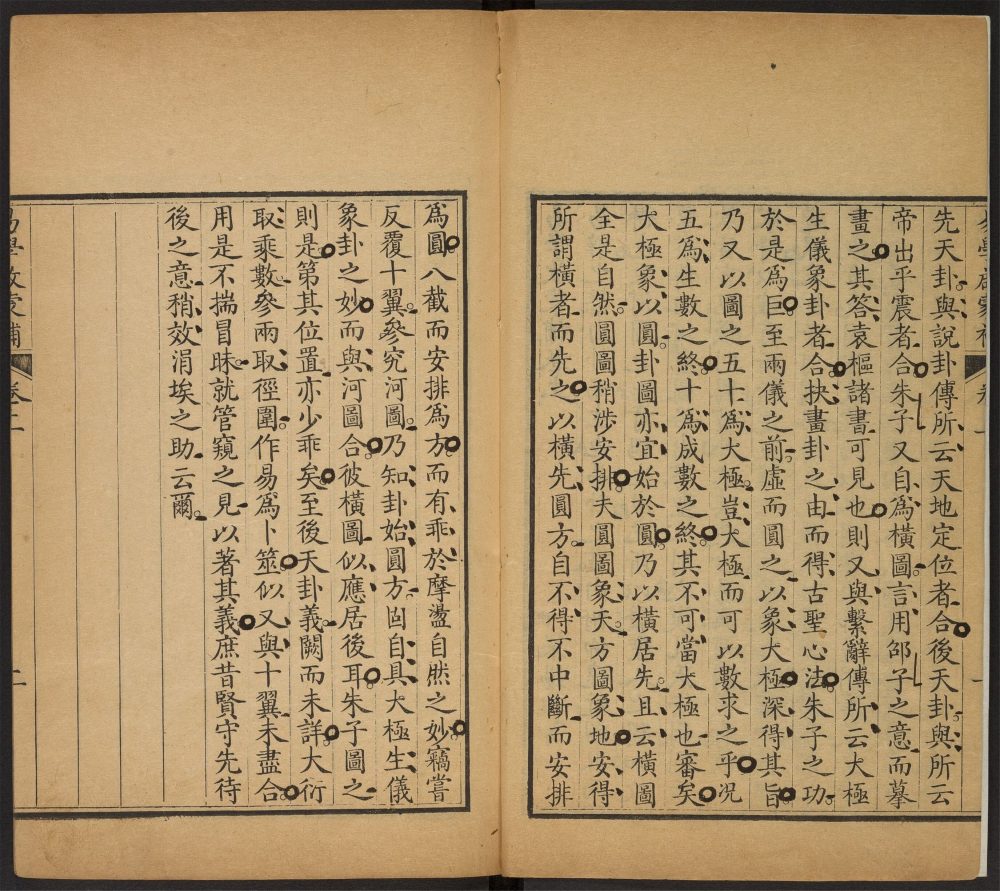 先天卦與說卦傳所云天地定位者合後天卦與所云
帝出乎震者合朱子又自爲橫圖言用邵子之意而摹
畫之其答袁樞諸書可見也則又與繫辭傳所云大極
生儀象卦者合抉畫卦之由而得古聖心法朱子之功
於是爲巨至兩儀之前虛而圓之以象大極深得其旨
乃又以圖之五十爲大極豈大極而可以數求之乎况
五爲生數之終十爲成數之終其不可當大極也審矣
大極象以圓卦圖亦宜始於圓乃以橫居先且云橫圖
全是自然圓圖稍涉安排夫圓圖象天方圖象地安得
所謂橫者而先之以橫先圓方自不得不中斷而安排
爲圓八截而安排爲方而有乖於摩盪自然之妙竊嘗
反覆十翼參究河圖乃知卦始圓方囙自具大極生儀
象卦之妙而與河圖合彼橫圖似應居後耳朱子圖之
則是第其位置亦少乖矣至後天卦義闕而未詳大衍
取乘數參兩取徑圍作易爲卜筮似又與十翼未盡合
用是不揣冒昧就管窺之見以著其義庶昔賢守先待
後之意稍效涓埃之助云爾
卷二
二